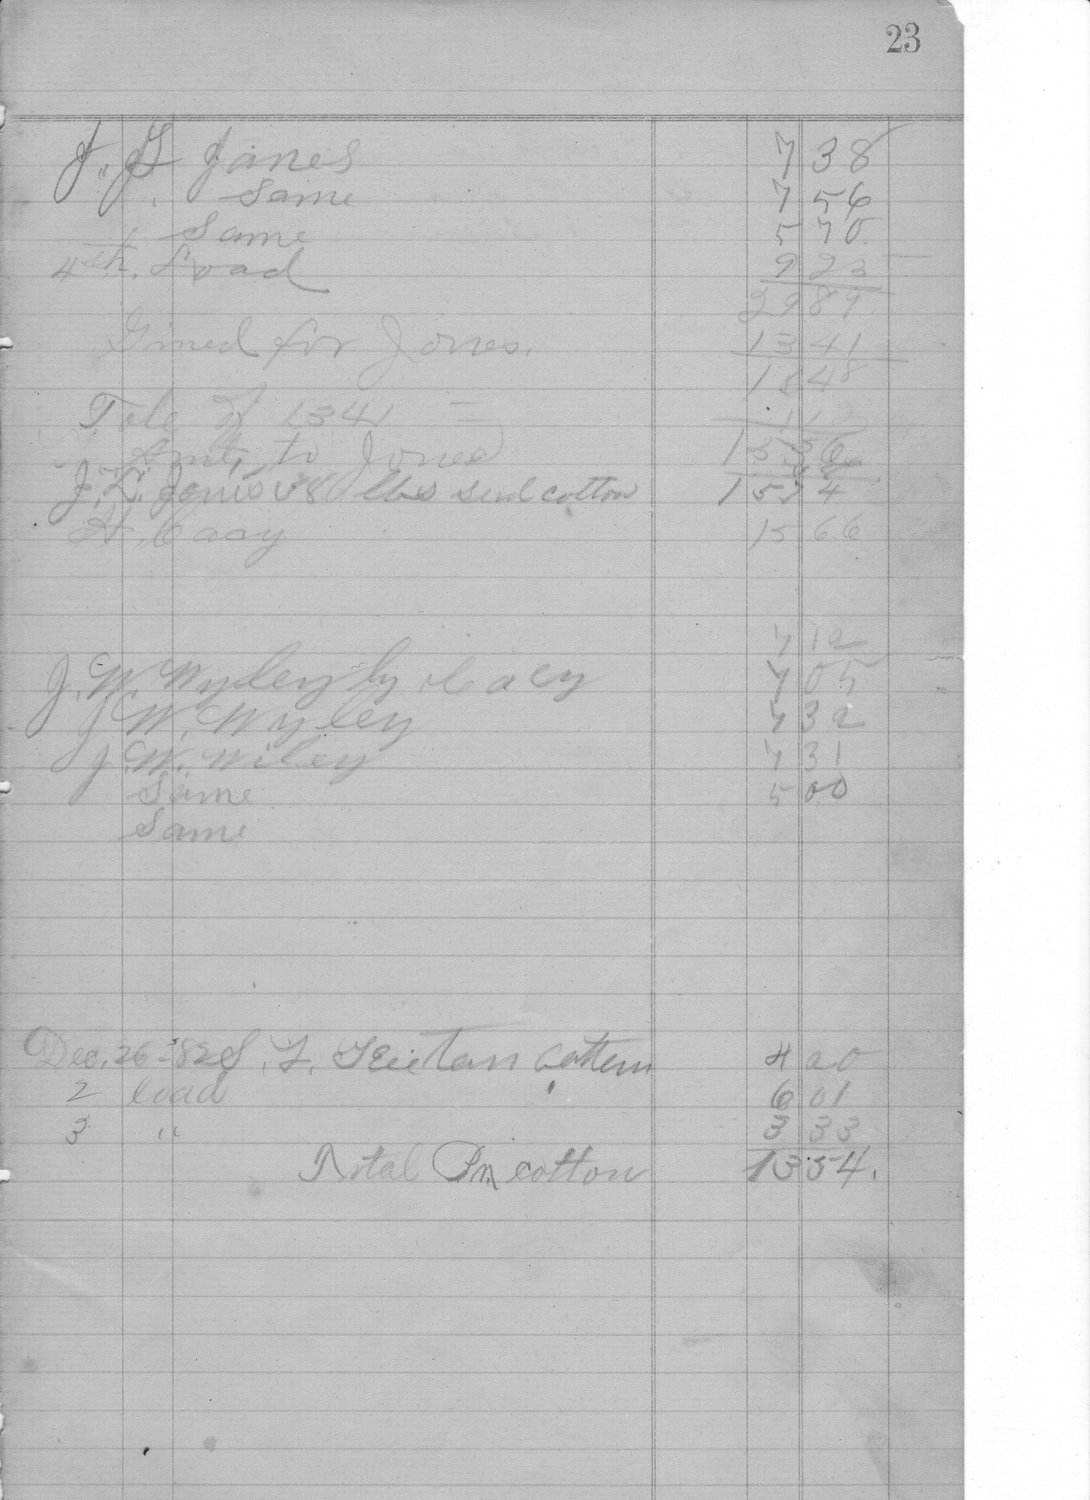 23
J. L. Jones 738
Same 756
Same 570
4th. Load 923
2989
Gined for Jones. 1341
1648
Tole of 1341 = 112
Amt, to Jones 1536
J. L. Jones lbs seed cotton 1574
H. Caay 1566
712
J. W. Wyley by Cacy 705
J W. Wyley 732
J. W. Wiley 731
Same 500
Same
Dec. 26-'82 S. L. 420
2 load 601
3 " 333
Total In cotton 1354.